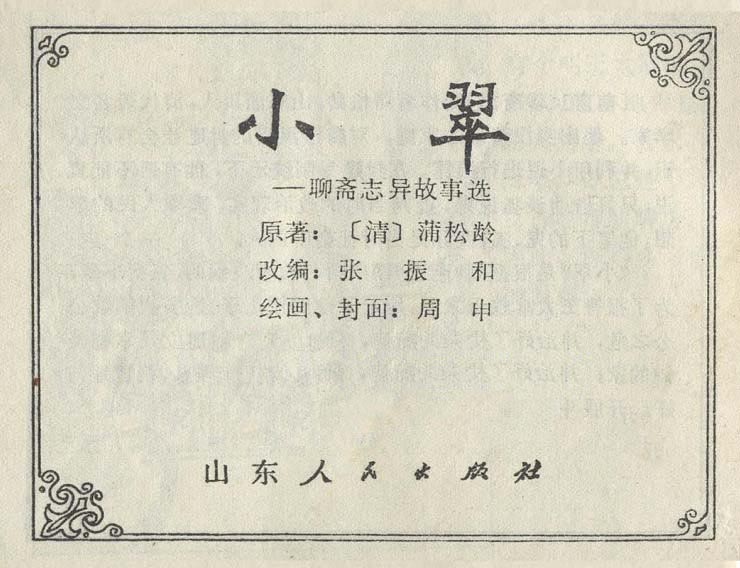 小翠
——聊斋志异故事选
原著：〔清〕蒲松龄
改编：张振和
绘画、封面：周申
山东人民出版社